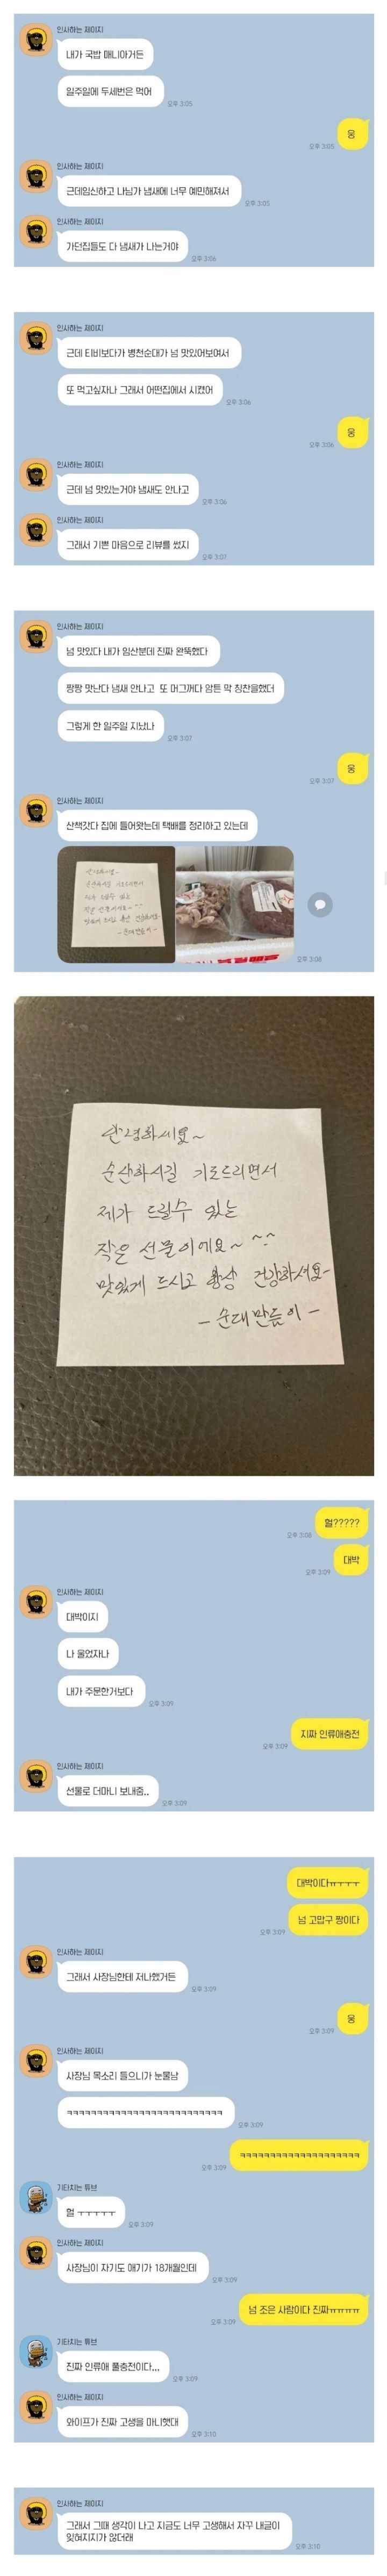 인사하는 제이지
내가 국밥 매니아거든
일주일에 두세번은 먹어
오후 3:05
웅
오후 3:05
인사하는 제이지
근데임신하고 나님가 냄새에 너무 예민해져서
오후 3:05
인사하는 제이지
가던집들도 다 냄새가 나는거야
오후 3:06
인사하는 제이지
근데 티비보다가 병천순대가 넘 맛있어보여서
또 먹고싶자나 그래서 어떤집에서 시켰어
오후 3:06
웅
오후 3:06
인사하는 제이지
근데 넘 맛있는거야 냄새도 안나고
오후 3:06
인사하는 제이지
그래서 기쁜 마음으로 리뷰를 썼지
오후 3:07
인사하는 제이지
넘 맛있다 내가 임산분데 진짜 완뚝했다
짱짱 맛난다 냄새 안나고 또 머그꺼다 암튼 막 칭찬을했더
그렇게 한 일주일 지났나
오후 3:07
웅
오후 3:07
인사하는 제이지
산책갓다 집에 들어왓는데 택배를 정리하고 있는데
오후 3:08
안녕하세요~
순산하시길 기도드리면서
제가 드릴수 있는
작은 선물이에요~ ^^
맛있게 드시고 항상 건강하셔요-
- 순대만듦이 -
헐?????
오후 3:08
대박
오후 3:09
인사하는 제이지
대박이지
나 울었자나
내가 주문한거보다
오후 3:09
지짜 인류애충전
오후 3:09
인사하는 제이지
선물로 더마니 보내줌..
오후 3:09
대박이다ㅠㅜㅜㅜ
넘 고맙구 짱이다
오후 3:09
인사하는 제이지
그래서 사장님한테 저나했거든
오후 3:09
웅
오후 3:09
인사하는 제이지
사장님 목소리 들으니가 눈물남
ㅋㅋㅋㅋㅋㅋㅋㅋㅋㅋㅋㅋㅋㅋㅋㅋㅋㅋㅋㅋㅋㅋㅋㅋㅋㅋ
오후 3:09
ㅋㅋㅋㅋㅋㅋㅋㅋㅋㅋㅋㅋㅋㅋㅋㅋㅋㅋㅋㅋ
오후 3:09
기타치는 튜브
헐 ㅜㅜㅜㅜㅜ
오후 3:09
인사하는 제이지
사장님이 자기도 애기가 18개월인데
오후 3:09
넘 조은 사람이다 진짜ㅠㅠㅠㅠ
오후 3:09
기타치는 튜브
진짜 인류애 풀충전이다...
오후 3:09
인사하는 제이지
와이프가 진짜 고생을 마니햇대
오후 3:10
인사하는 제이지
그래서 그때 생각이 나고 지금도 너무 고생해서 자꾸 내글이
잊혀지지가 않더래
오후 3:10